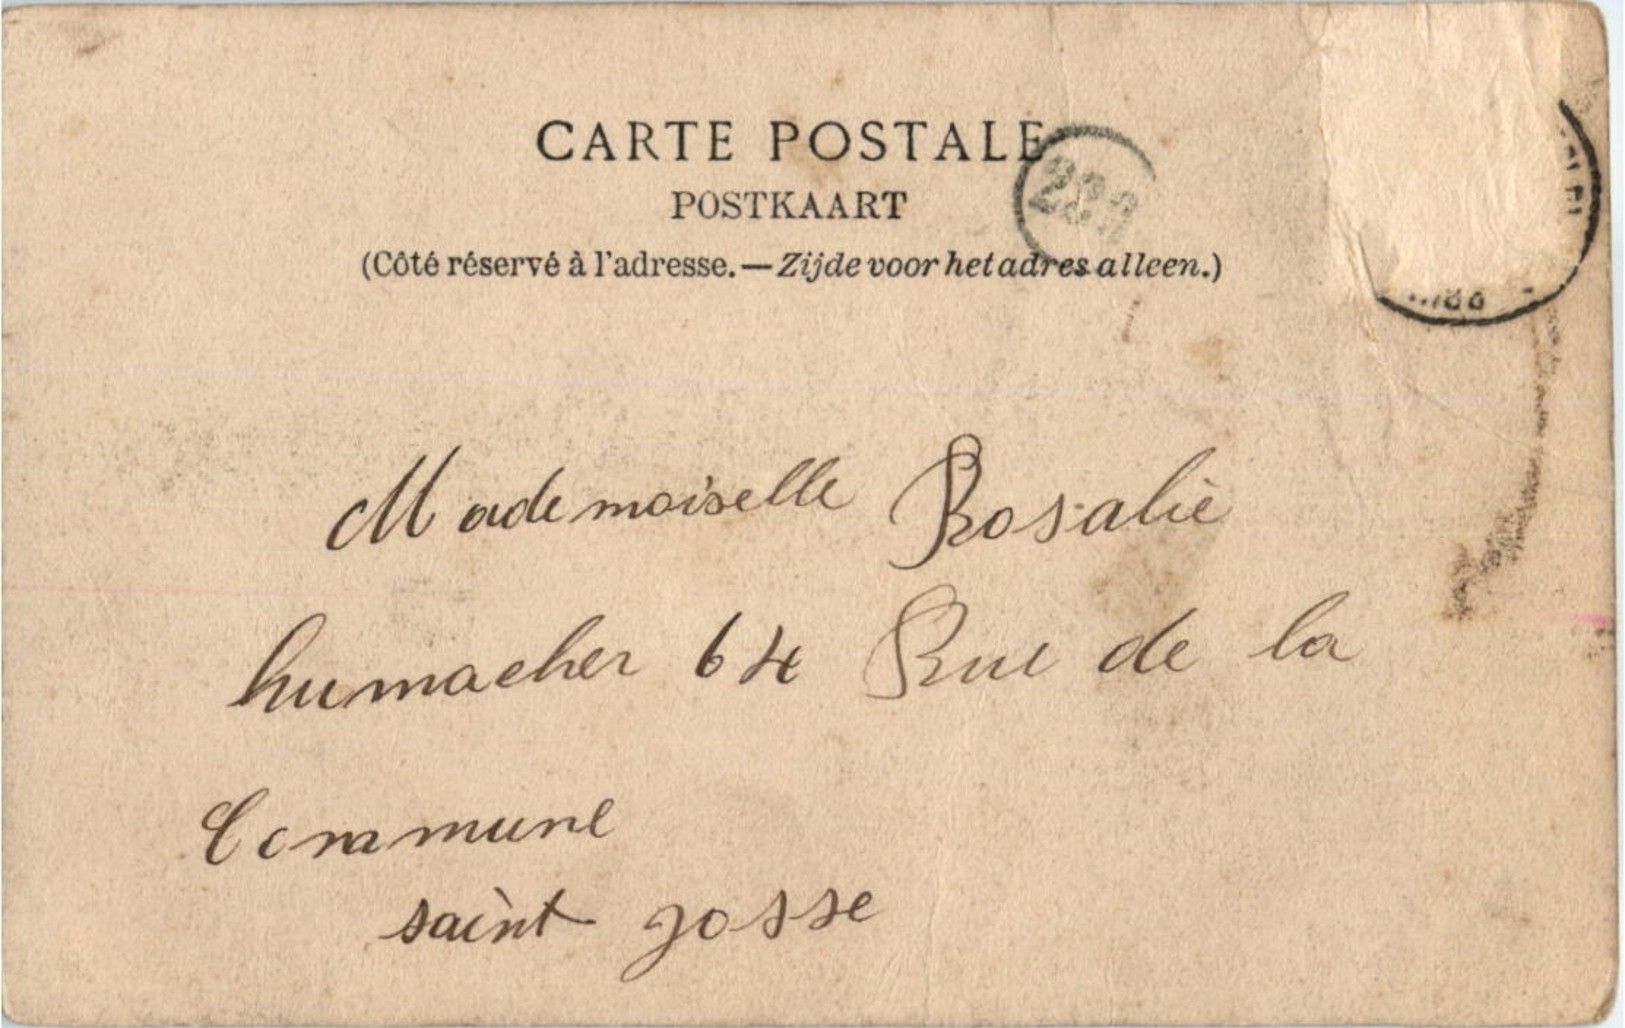 CARTE POSTALE
POSTKAART
(Côté réservé à l'adresse. — Zijde voor het adres alleen.)
223
Mademoiselle Rosalie
humacher 64 Rue de la
Commune
saint josse